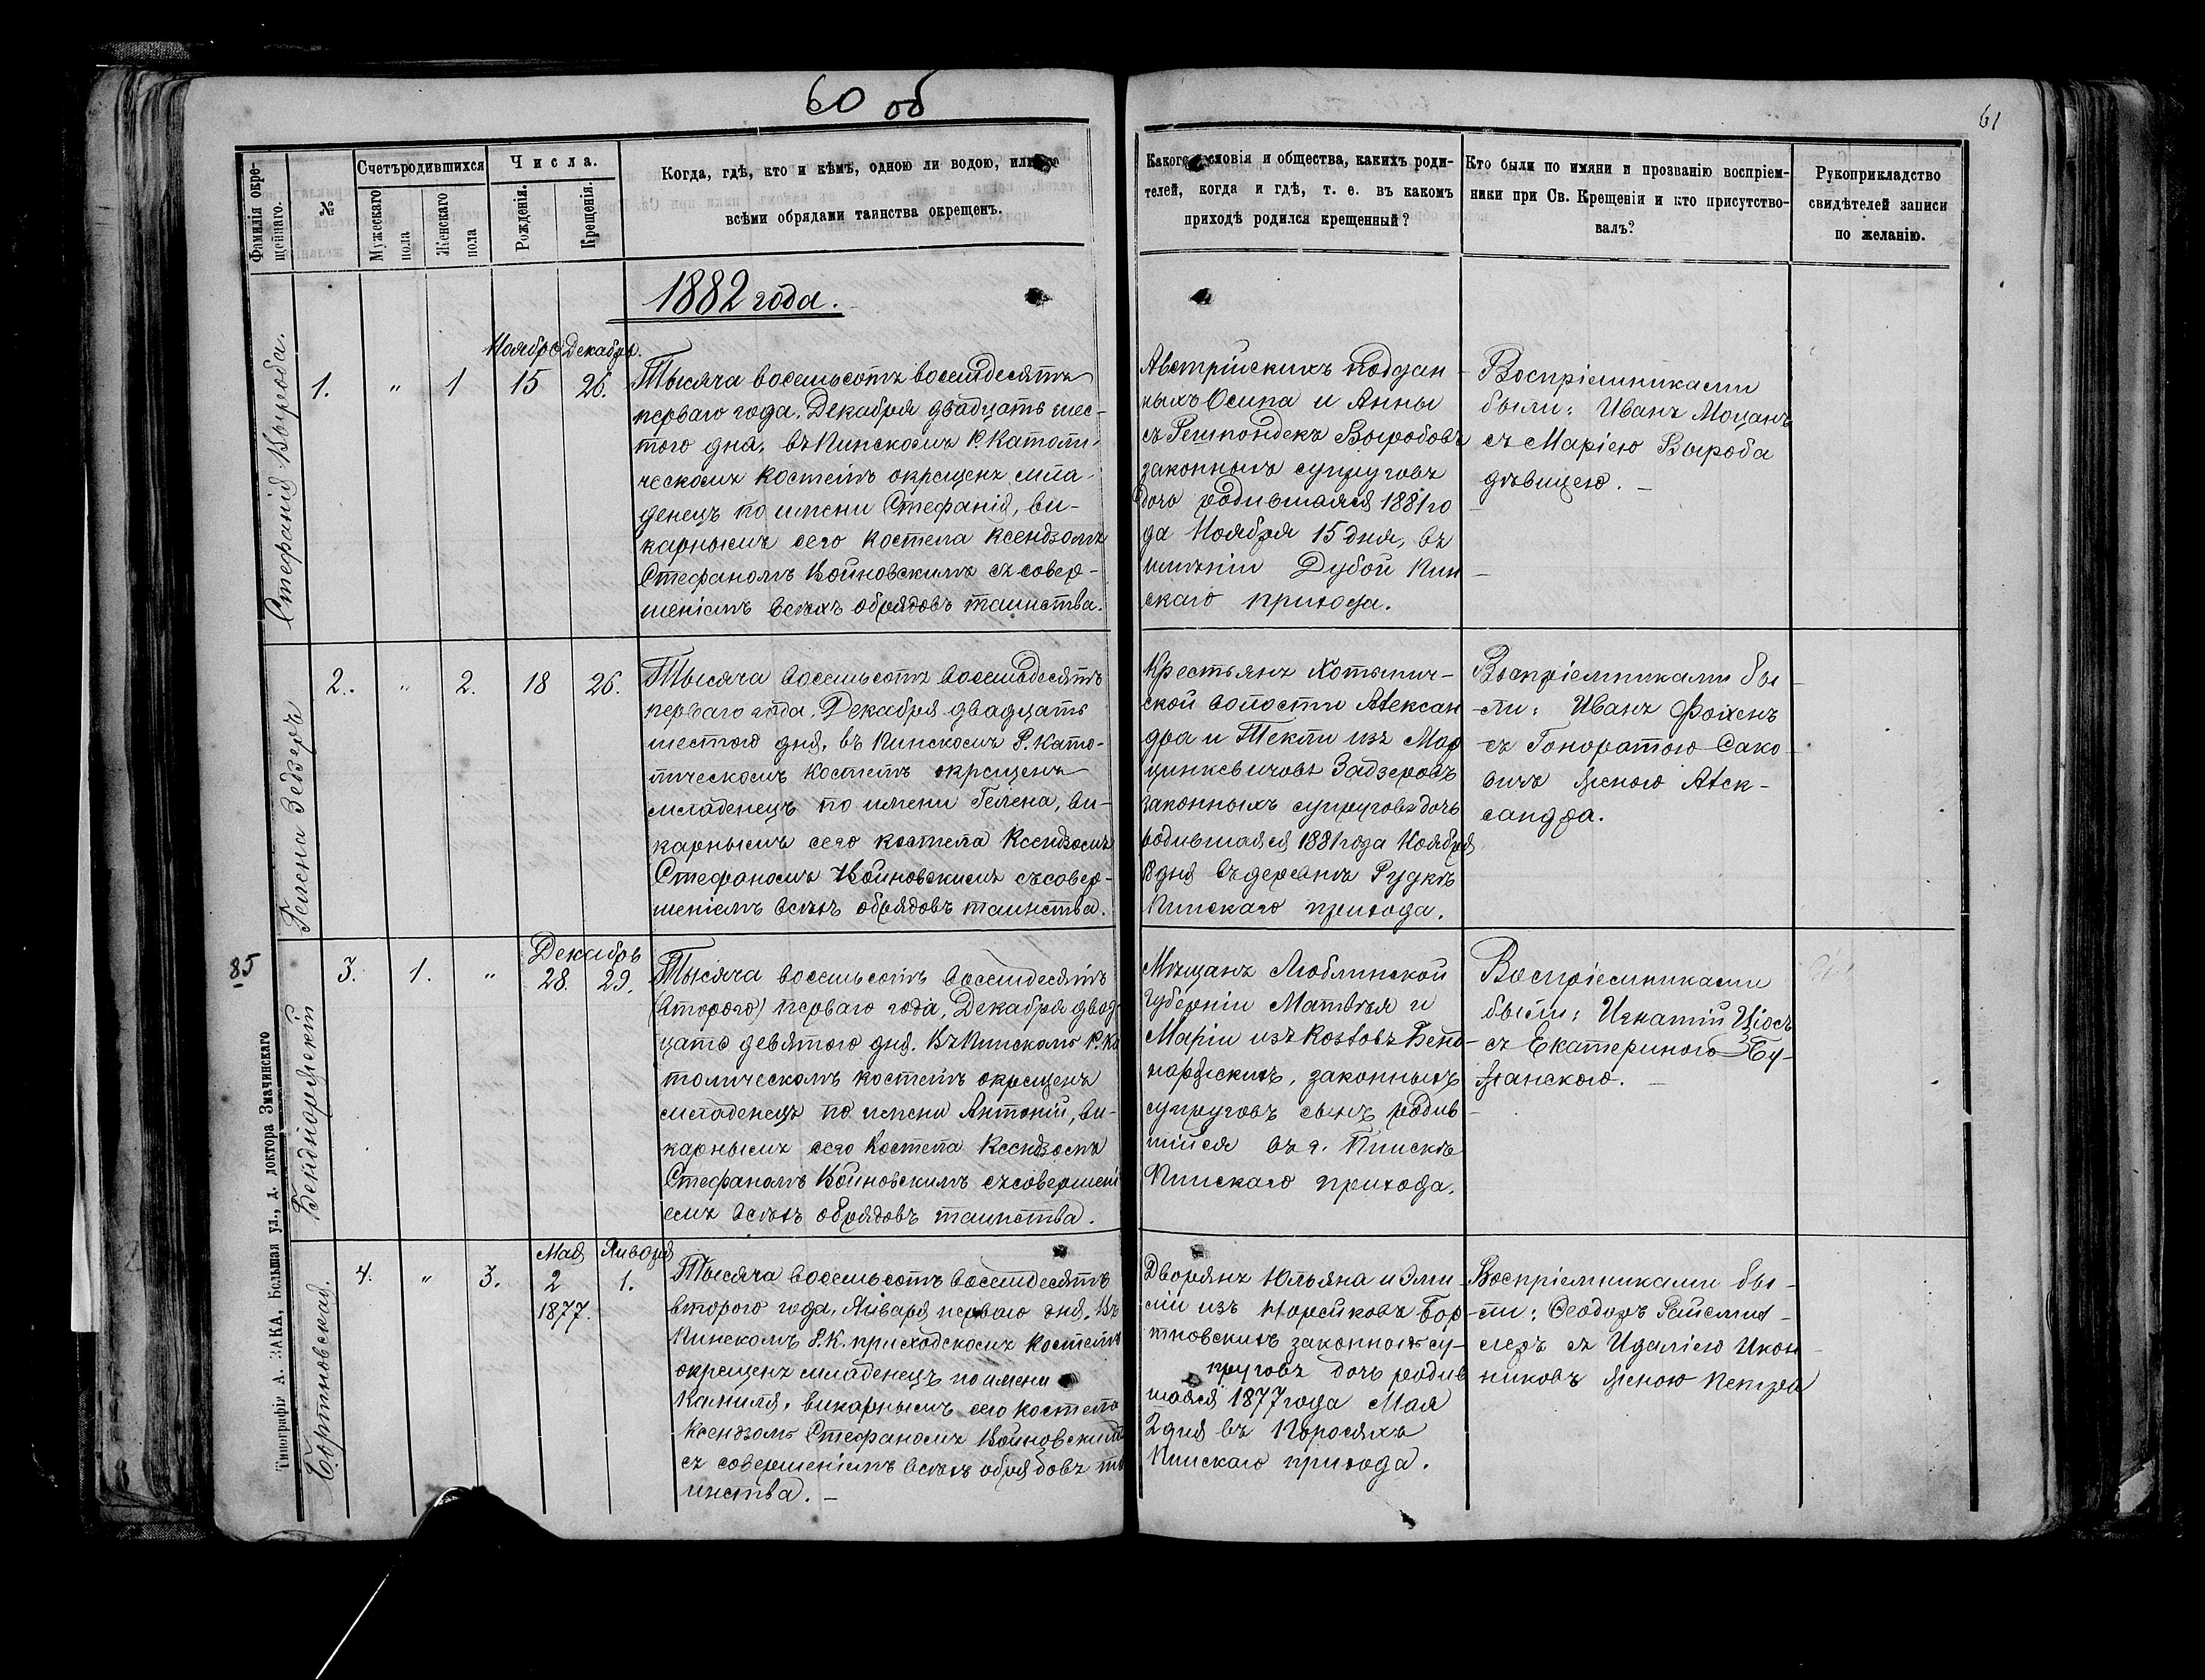 60 об
61
Фамилія окре-
щеннаго.
№
Счетъ родившихся
Мужескаго
пола
Женскаго
пола
Числа.
Рожденія.
Крещенія.
Когда, гдѣ, кто и кѣмъ, одною ли водою, или со
всѣми обрядами таинства окрещенъ.
Какого сословія и общества, какихъ роди-
телей, когда и гдѣ, т. е. въ какомъ
приходѣ родился крещенный?
Кто были по имяни и прозванію воспріем-
ники при Св. Крещеніи и кто присутство-
валъ?
Рукоприкладство
свидѣтелей записи
по желанію.
1882 года.
Стефанія Выроба.
1.
"
1
Ноябрь
15
Декабрь.
26.
Тысяча восемьсотъ восемдесятъ
перваго года, Декабря двадцать шес-
того дня, въ Пинскомъ Р. Католи-
ческомъ костелѣ окрещенъ мла-
денецъ по имени Стефанія, ви-
карнымъ сего костела Ксендзомъ
Стефаномъ Войновскимъ съ совер-
шеніемъ всѣхъ обрядовъ таинства.
Австрійскихъ поддан-
ныхъ Осипа и Анны
съ Решпондекъ Выробовъ
законныхъ супруговъ
дочь родившаяся 1881 го
да Ноября 15 дня, въ
имѣніи Дубой Пин-
скаго прихода.
Воспріемниками
были: Иванъ Моцанъ
съ Маріею Выроба
дѣвицею. —
Гелена Зедзеръ
2.
"
2.
18
26.
Тысяча восемьсотъ восемьдесятъ
перваго года, Декабря двадцать
шестого дня, въ Пинскомъ Р. Като-
лическомъ костелѣ окрещенъ
младенецъ по имени Гелена, ви-
карнымъ сего костела Ксендзомъ
Стефаномъ Войновскимъ съ совер-
шеніемъ всѣхъ обрядовъ таинства.
Крестьянъ Хотынич-
ской волости Алексан
дра и Текли изъ Мар
цинкевичовъ Задзеровъ
законныхъ супруговъ дочь
родившаяся 1881 года Ноября
18 дня въ деревнѣ Рудкѣ
Пинскаго прихода.
Воспріемниками бы-
ли: Иванъ
съ Гоноратою Сако-
вичъ женою Алек-
сандра.
85
Бенднаржскій
3.
1.
"
Декабрь
28.
29.
Тысяча восемьсотъ восемдесятъ
(второго) перваго года, Декабря двад-
цать девятого дня. Въ Пинскомъ Р. Ка
толическомъ костелѣ окрещенъ
младенецъ по имени Антоній, ви-
карнымъ сего костела Ксендзомъ
Стефаномъ Войновскимъ съ совершені
емъ всѣхъ обрядовъ таинства.
Мѣщанъ Люблинской
Губерніи Матвѣя и
Маріи изъ Козловъ Бенд-
наржскихъ, законныхъ
супруговъ сынъ родив-
шійся въ г. Пинскѣ
Пинскаго прихода.
Воспріемниками
были: Игнатій Ціосъ
съ Екатериною Бу-
жанскою. —
Бортновская.
4.
"
3.
Мая
2
1877.
Января
1.
Тысяча восемьсотъ восемдесятъ
второго года, Января перваго дня. Въ
Пинскомъ Р. К. приходскомъ костелѣ
окрещенъ младенецъ по имени
Камиля, викарнымъ сего костела
Ксендзомъ Стефаномъ Войновскимъ
съ совершеніемъ всѣхъ обрядовъ та
инства. —
Дворянъ Юльяна и Эми-
ліи изъ Норейковъ Бор-
тновскихъ законныхъ су-
пруговъ дочь родив
шаяся 1877 года Мая
2 дня въ Поросяхъ
Пинскаго прихода.
Воспріемниками бы-
ли: Феодоръ
съ Идаліею Икон-
никовъ женою Петра
Типографія А. ЗАКА, Большая ул., д. доктора Значинскаго